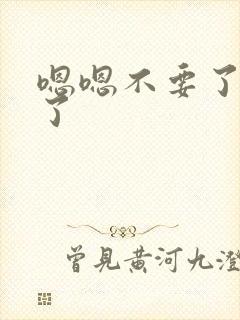 嗯嗯不要了
了
曾見黃河九澄